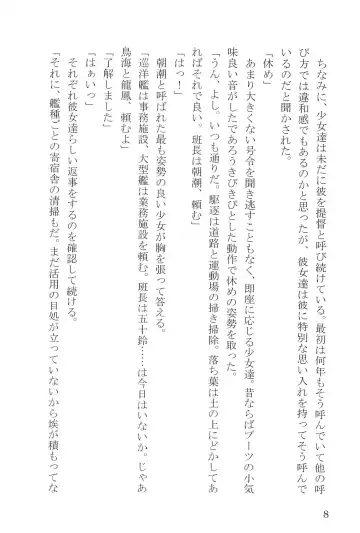 ちなみに、少女達は未だに彼を提督と呼び続けている。最初は何年もそう呼んでいて他の呼
び方では違和感でもあるのかと思ったが、彼女達は彼に特別な思い入れを持ってそう呼んで
いるのだと聞かされた。
「休め」
あまり大きくない号令を聞き逃すこともなく、即座に応じる少女達。昔ならばブーツの小気
味良い音がしたであろうきびきびとした動作で休めの姿勢を取った。
「うん、よし。いつも通りだ。駆逐は道路と運動場の掃き掃除。落ち葉は土の上にどかしてあ
ればそれで良い。班長は朝潮、頼む」
「はっ！」
朝潮と呼ばれた最も姿勢の良い少女が胸を張って答える。
「巡洋艦は事務施設、大型艦は業務施設を頼む。班長は五十鈴……は今日はいないか。じゃあ
鳥海と龍鳳、頼むよ」
「了解しました」
「はぁいっ」
それぞれ彼女達らしい返事をするのを確認して続ける。
「それに、艦種ごとの寄宿舎の清掃もだ。まだ活用の目処が立っていないから埃が積もってな
8